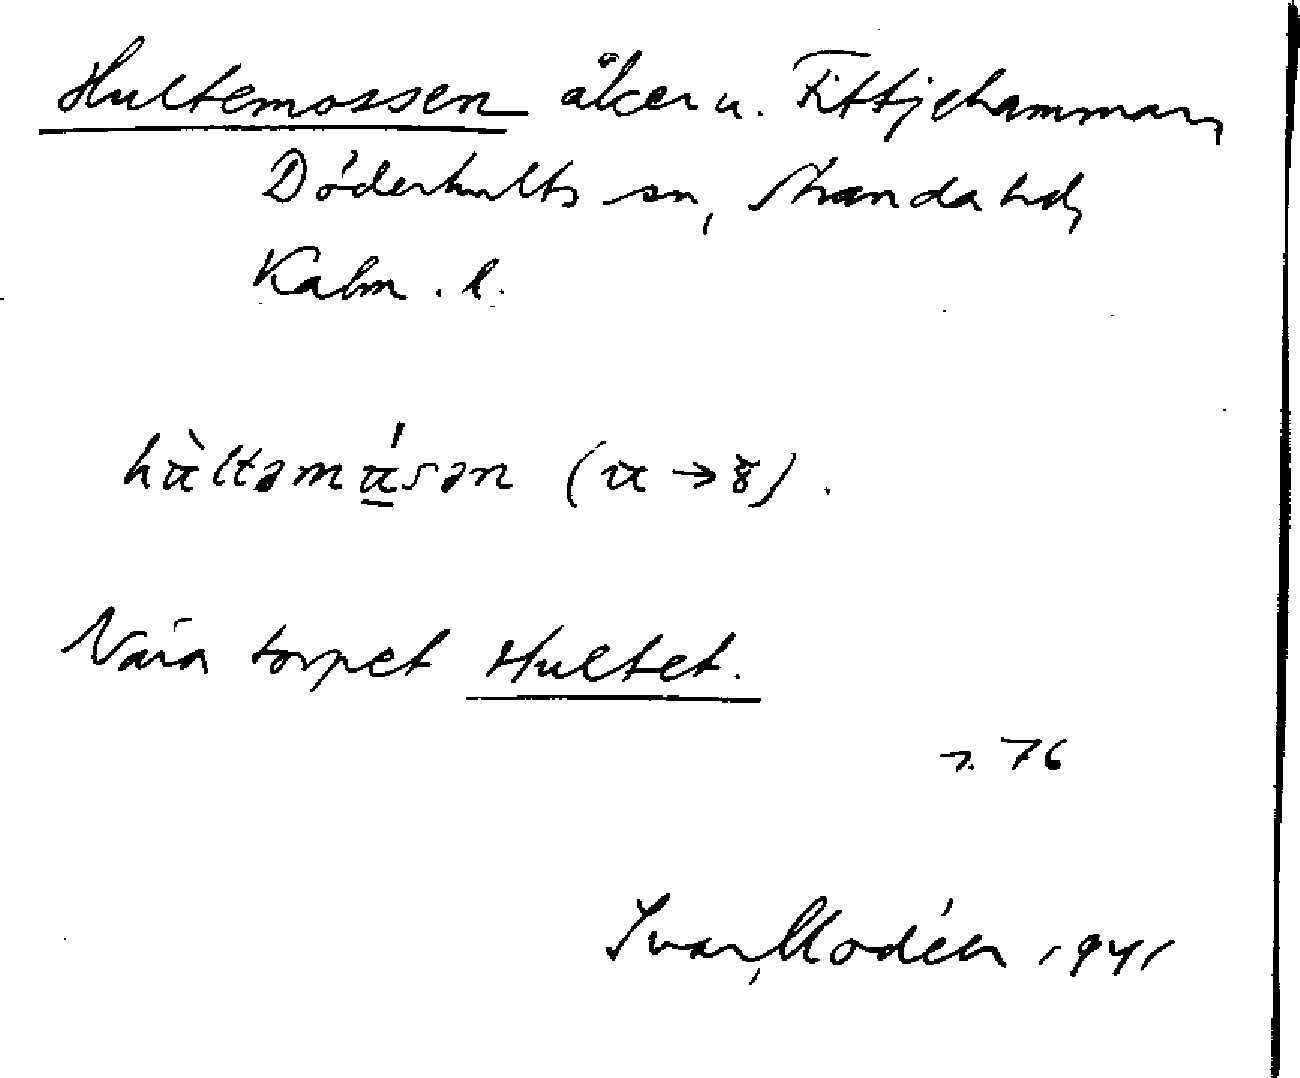 Hultemossen åker u. Fittjehammar,
Döderhults sn, Stranda hd,
Kalm. l.
hùltəmúsən (u → ).
Nära torpet Hultet.
n. 76
Ivar Modéer 1941